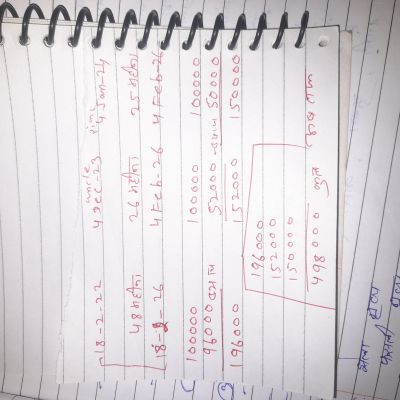 uncle
18-2-22 4 Dec-23 4 Jan-24
48 महीना 26 महीना 25 महीना
18-2-26 4 Feb-26 4 Feb-26
100000 100000 100000
96000 ब्याज 52000 ब्याज 50000
196000 152000 150000
196000
152000
150000
498000 कुल